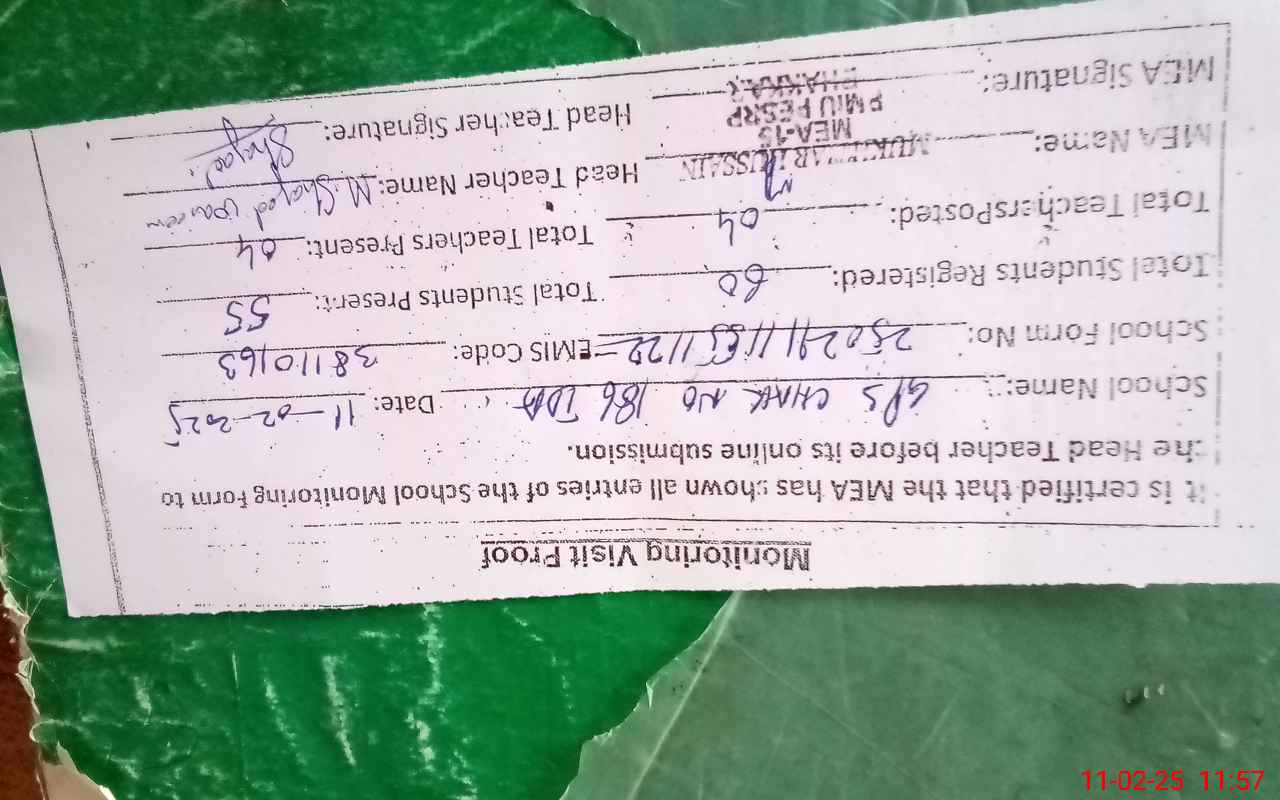 Monitoring Visit Proof
It is certified that the MEA has shown all entries of the School Monitoring Form to
the Head Teacher before its online submission.
School Name: GPS CHAK NO 186 TDA Date: 11-02-2025
School Form No: EMIS Code: 38110163
Total Students Registered: 60 Total Students Present: 55
Total Teachers Posted: 04 Total Teachers Present: 04
MEA Name: MUKHTAR HUSSAIN Head Teacher Name: M.
MEA-15
PMIU PESRP
BHAKKAR
MEA Signature: Head Teacher Signature:
11-02-25 11:57